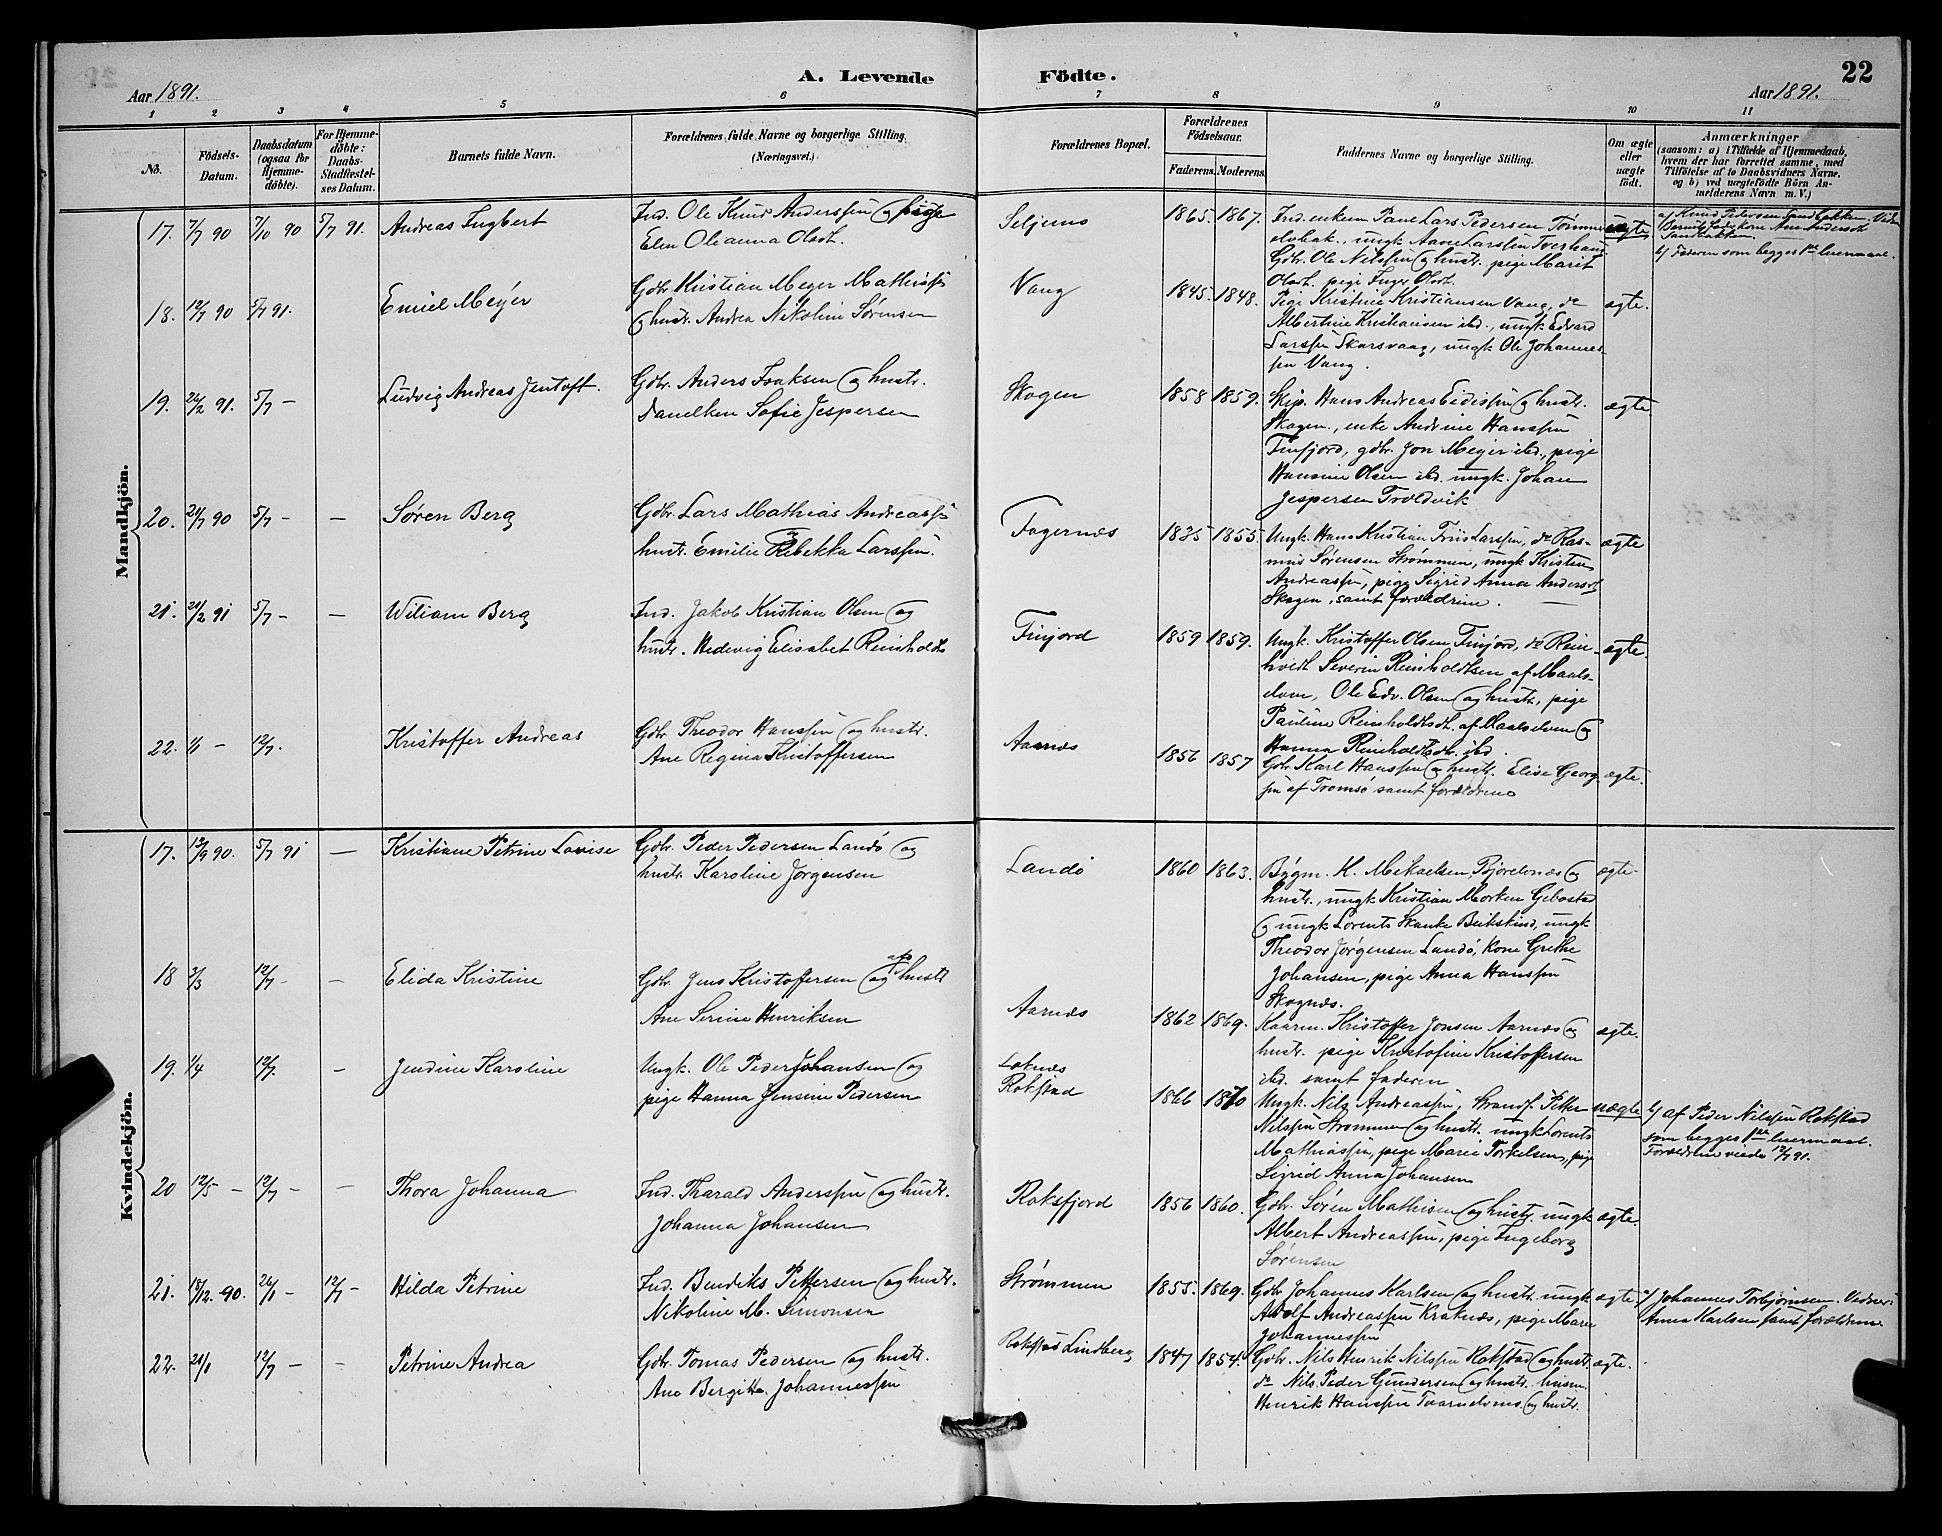 A. Levende
Födte.
22
Aar 1891.
Aar 1891.
1 2 3 4 5 6 7 8 9 10 11
No.
Födsels-
Datum.
Daabsdatum
(ogsaa for
Hjemme-
döbte).
For Hjemme-
döbte:
Daabs-
Stadfæstel-
ses Datum.
Barnets fulde Navn.
Forældrenes fulde Navne og borgerlige Stilling.
(Næringsvei.)
Forældrenes Bopæl.
Forældrenes
Födselsaar.
Faderens. Moderens.
Faddernes Navne og borgerlige Stilling.
Om ægte
eller
uægte
født.
Anmærkninger
(saasom: a) i Tilfælde af Hjemmedaab,
hvem der har forrettet samme, med
Tilföielse af to Daabsvidners Navne.
og b) ved uægtefödte Börn An-
melderens Navn m. V.)
Mandkjön.
17. 7/7 90 7/10 90 5/7 91. Andreas Ingbert
Ind. Ole Knud Anderssen og pige
Elen Olianna Olsdt.
Seljenes 1865. 1867.
Ind. enkem Paul Lars Pedersen Tømmer
elvbak., ungk Aane Larssen Tverhaug
Gdbr. Ole Nilssen og hustr. pige Marit
Olsdt. pige Inger Olsdt.
uægte
a) Knud Pedersen Sandbakken. Vidn
Sandbakken.
b) Faderen som begges 1ste leiermaal.
18. 12/7 90 5/7 91. Emiel Meyer
Gdbr. Kristian Meyer Mathissen
og hustr. Andrea Nikoline Sørensen
Vang 1845. 1848.
Pige Kristine Kristiansen Vang, do
Albertine Kristiansen ibd., ungk Edvard
Larssen Skarsvaag, ungk Ole Johannes-
sen Vang.
ægte.
19. 24/2 91. 5/7 - Ludvig Andreas Jentoft.
Gdbr. Anders Isaksen og hustr.
Danelken Sofie Jespersen
Skogen 1858 1859.
Skip. Hans Andreas Eidissen og hustr.
Skogen., enke Andrine Hanssen
Finfjord, gdbr. Jon Meyer ibd., pige
Hansine Olsen ibd. ungk. Johan
Jespersen Troldvik
ægte
20. 21/7 90 5/7 - - Søren Berg
Gdbr. Lars Mathias Andreassen
hustr. Emilie Rebekka Larssen.
Fagernes 1835 1855.
Ungk. Hans Kristian Friis Larssen, do Ras-
mus Sørensen Strømmen, ungk Kristian
Andreassen, pige Sigrid Anna Andersd
Skogen, samt forældrene.
ægte
21. 21/2 91 5/7 - - Wiliam Berg
Ind. Jakob Kristian Olsen og
hustr. Hedevig Elisabet Reinholdts
Finjord 1859 1859.
Ungk. Kristoffer Olsen Finjord, do Rein-
hold Severin Reinholdtsen af Maals-
elven, Ole Edv. Olsen og hustr., pige
Pauline Reinholdtsdt. af Maalselven og
Hanna Reinholdtsdt. ibd.
ægte.
22. 1/1 - 12/7. Kristoffer Andreas
Gdbr. Theodor Hanssen og hustr.
Ane Regina Kristoffersen
Aarnæs 1856 1857
Gdbr. Karl Hanssen og hustr. Elise Georg-
sen af Tromsø samt forældrene
ægte.
Kvindekjön.
17. 13/9 90. 5/7 91 - Kristiane Petrine Lovise
Gdbr. Peder Pedersen Landø og
hustr. Karoline Jørgensen
Landø 1860 1863.
Bygm. K. Mikaelsen, Bjorelvnæs og
hustr., ungk Kristian Morken Gibostad
og ungk Lorents Skanke Bukskind, ungk
Theodor Jørgensen Landø, kone Grethe
Johansen, pige Anna Hanssen
Skognæs.
ægte.
18 3/3 12/7 - - Elida Kristine
Gdbr. Jens Kristoffersen og hustr
Ane Serine Henriksen
Aarnæs 1862 1869.
Kaarem. Kristoffer Jonsen Aarnæs og
hustr. pige Kristofine Kristoffersen
ibd. samt faderen
ægte.
19. 1/4 12/7. - Jendine Karoline
Ungk. Ole Peder Johansen og
pige Hanna Jensine Pedersen
Laknes
Rokstad 1866 1870
Ungk. Nils Andreassen, Strands. Petter
Nilssen Strømmen og hustr. ungk Lorents
Mathiassen, pige Marie Torkelsen, pige
Sigrid Anna Johansen
uægte
b) af Peder Nilssen Rokstad
som begges 1ste leiermaal.
Forældrene viede 12/7 91.
20 12/5 - 12/7 - - Thora Johanna
Ind. Tharald Anderssen og hustr.
Johanna Johansen
Roksfjord 1856 1860.
Gdbr. Søren Mathisen og hustr. ungk
Albert Andreassen, pige Ingeborg
Sørensen
ægte.
21. 18/12. 90. 26/1 - 12/7 - Hilda Petrine
Ind. Bendiks Pettersen og hustr.
Nikoline M. Simonsen
Strømmen 1855. 1869.
Gdbr Johannes Karlsen og hustr. ungk
Adolf Andreassen Kraknæs, pige Maren
Johannessen
ægte.
a) Johannes Torbjørnsen. Vidner:
Anna Karlsen samt forældrene
22. 21/1 12/7 - - Petrine Andrea
Gdbr. Tomas Pedersen og hustr.
Ane Bergitte Johannessen
Rokstad Lindberg 1847 1854.
Gdbr. Nils Henrik Nilssen Rokstad og hustr
do Nils Peder Gundersen og hustr. husm.
Henrik Hanssen Tvarnelvens og hustr.
ægte.